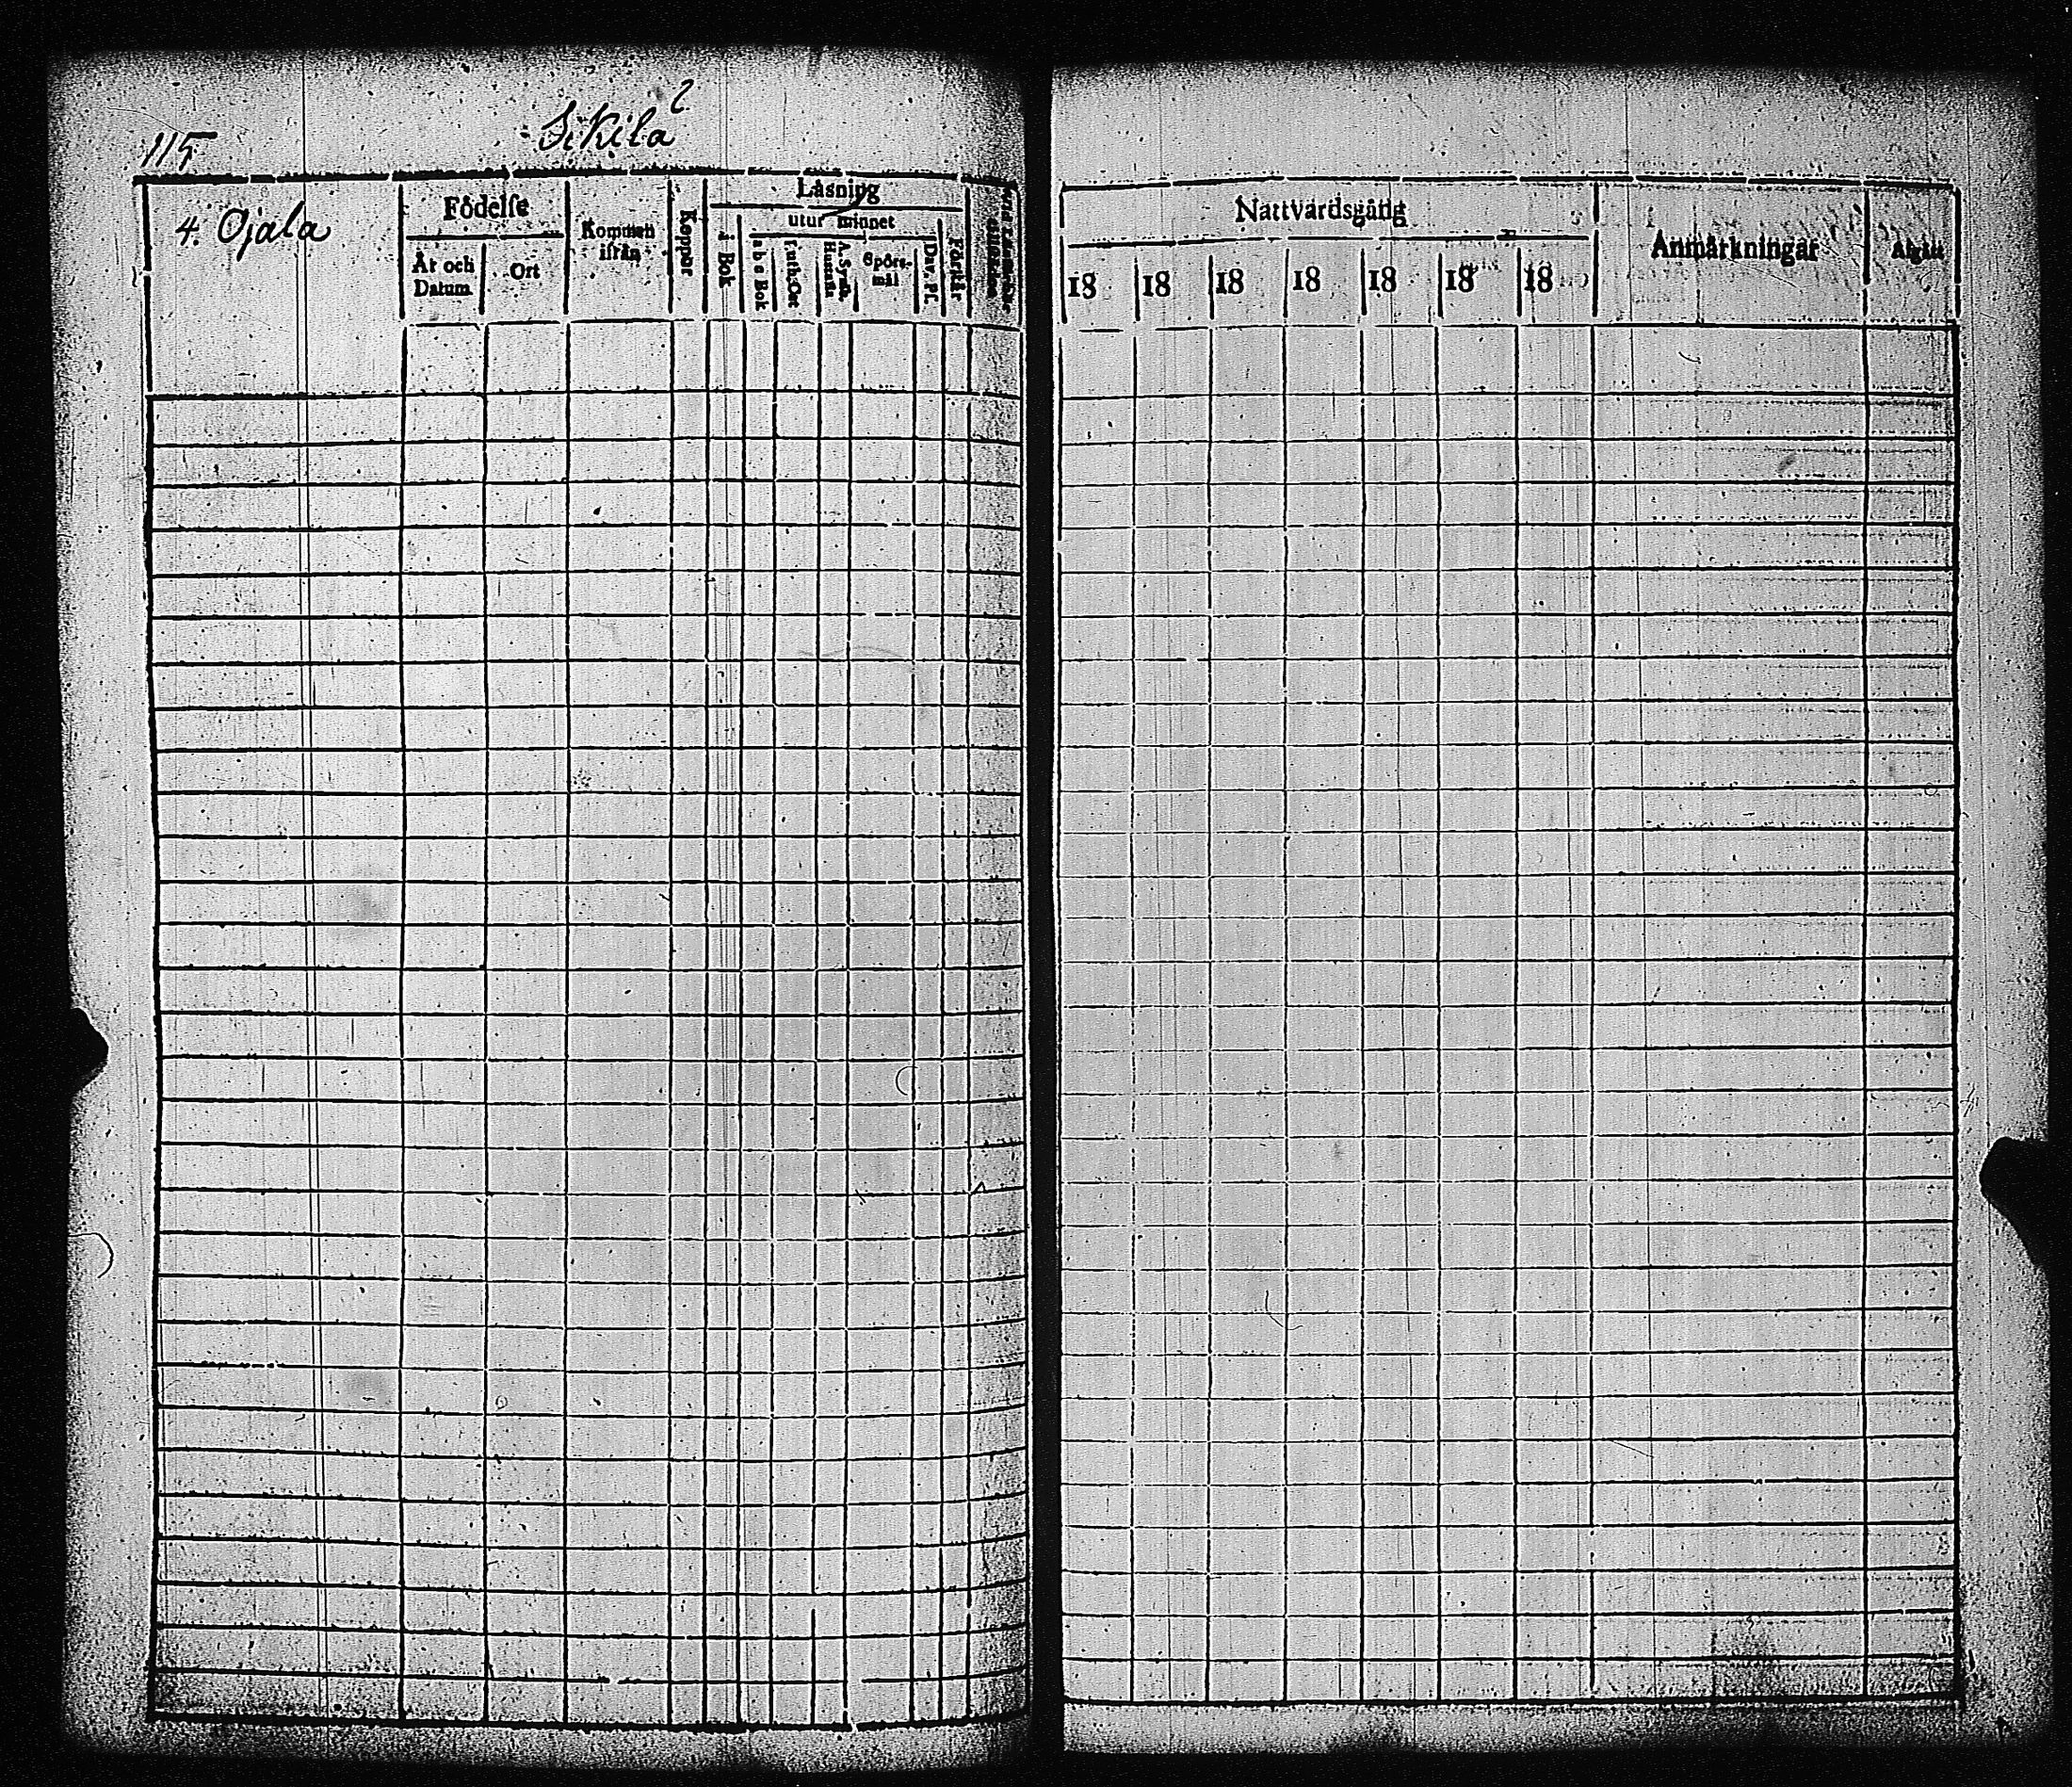 115
Sikila
4. Ojala
Födelse
År och Datum
Ort
Kommen ifrån
Koppor
Läsning
i Bok
utur minnet
a b c Bok
Luth: Cat
A. Symb. Hustafla
Spörs-mål
Dav. Ps.
Förstår
Nattvardsgång
18 18 18 18 18 18 18
Anmärkningar
Afgått